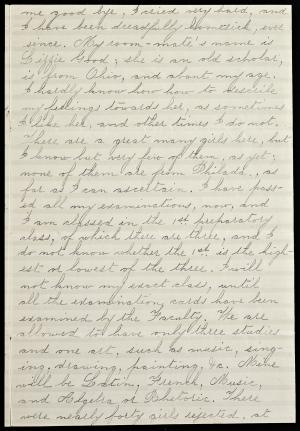 me good bye, I cried very hard, and
I have been dreadfully homesick, ever
since. My room-mate's name is
Lizzie Good; she is an old scholar,
is from Ohio, and about my age.
I hardly know how how to describe
my feelings towards her, as sometimes
I like her, and other times I do not.
There are a great many girls here, but
I know but very few of them, as yet;
none of them are from Philada., as
far as I can ascertain. I have pass-
ed all my examinations, now, and
I am classed in the 1st preparatory
class, of which there are three, and I
do not know whether the 1st. is the high-
est or lowest of the three. I will
not know my exact class, until
all the examination cards have been
examined by the Faculty. We are
allowed to have only three studies
and one art, such as music, sing-
ing, drawing, painting, &c. Mine
will be Latin, French, Music,
and Algebra or Rhetoric. There
were nearly forty girls rejected, at